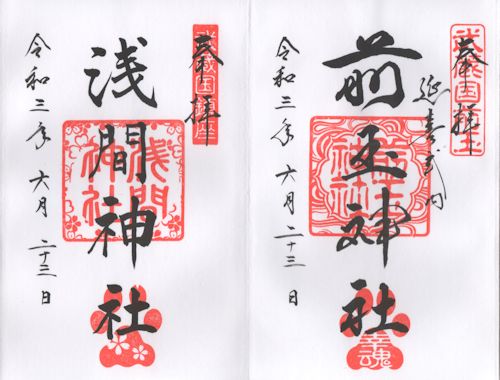 奉拝
延喜式内
前玉神社
前玉神社
幸魂
令和三年 六月 二十三日
武蔵国鎮座
奉拝
浅間神社
浅間神社
令和三年 六月 二十三日